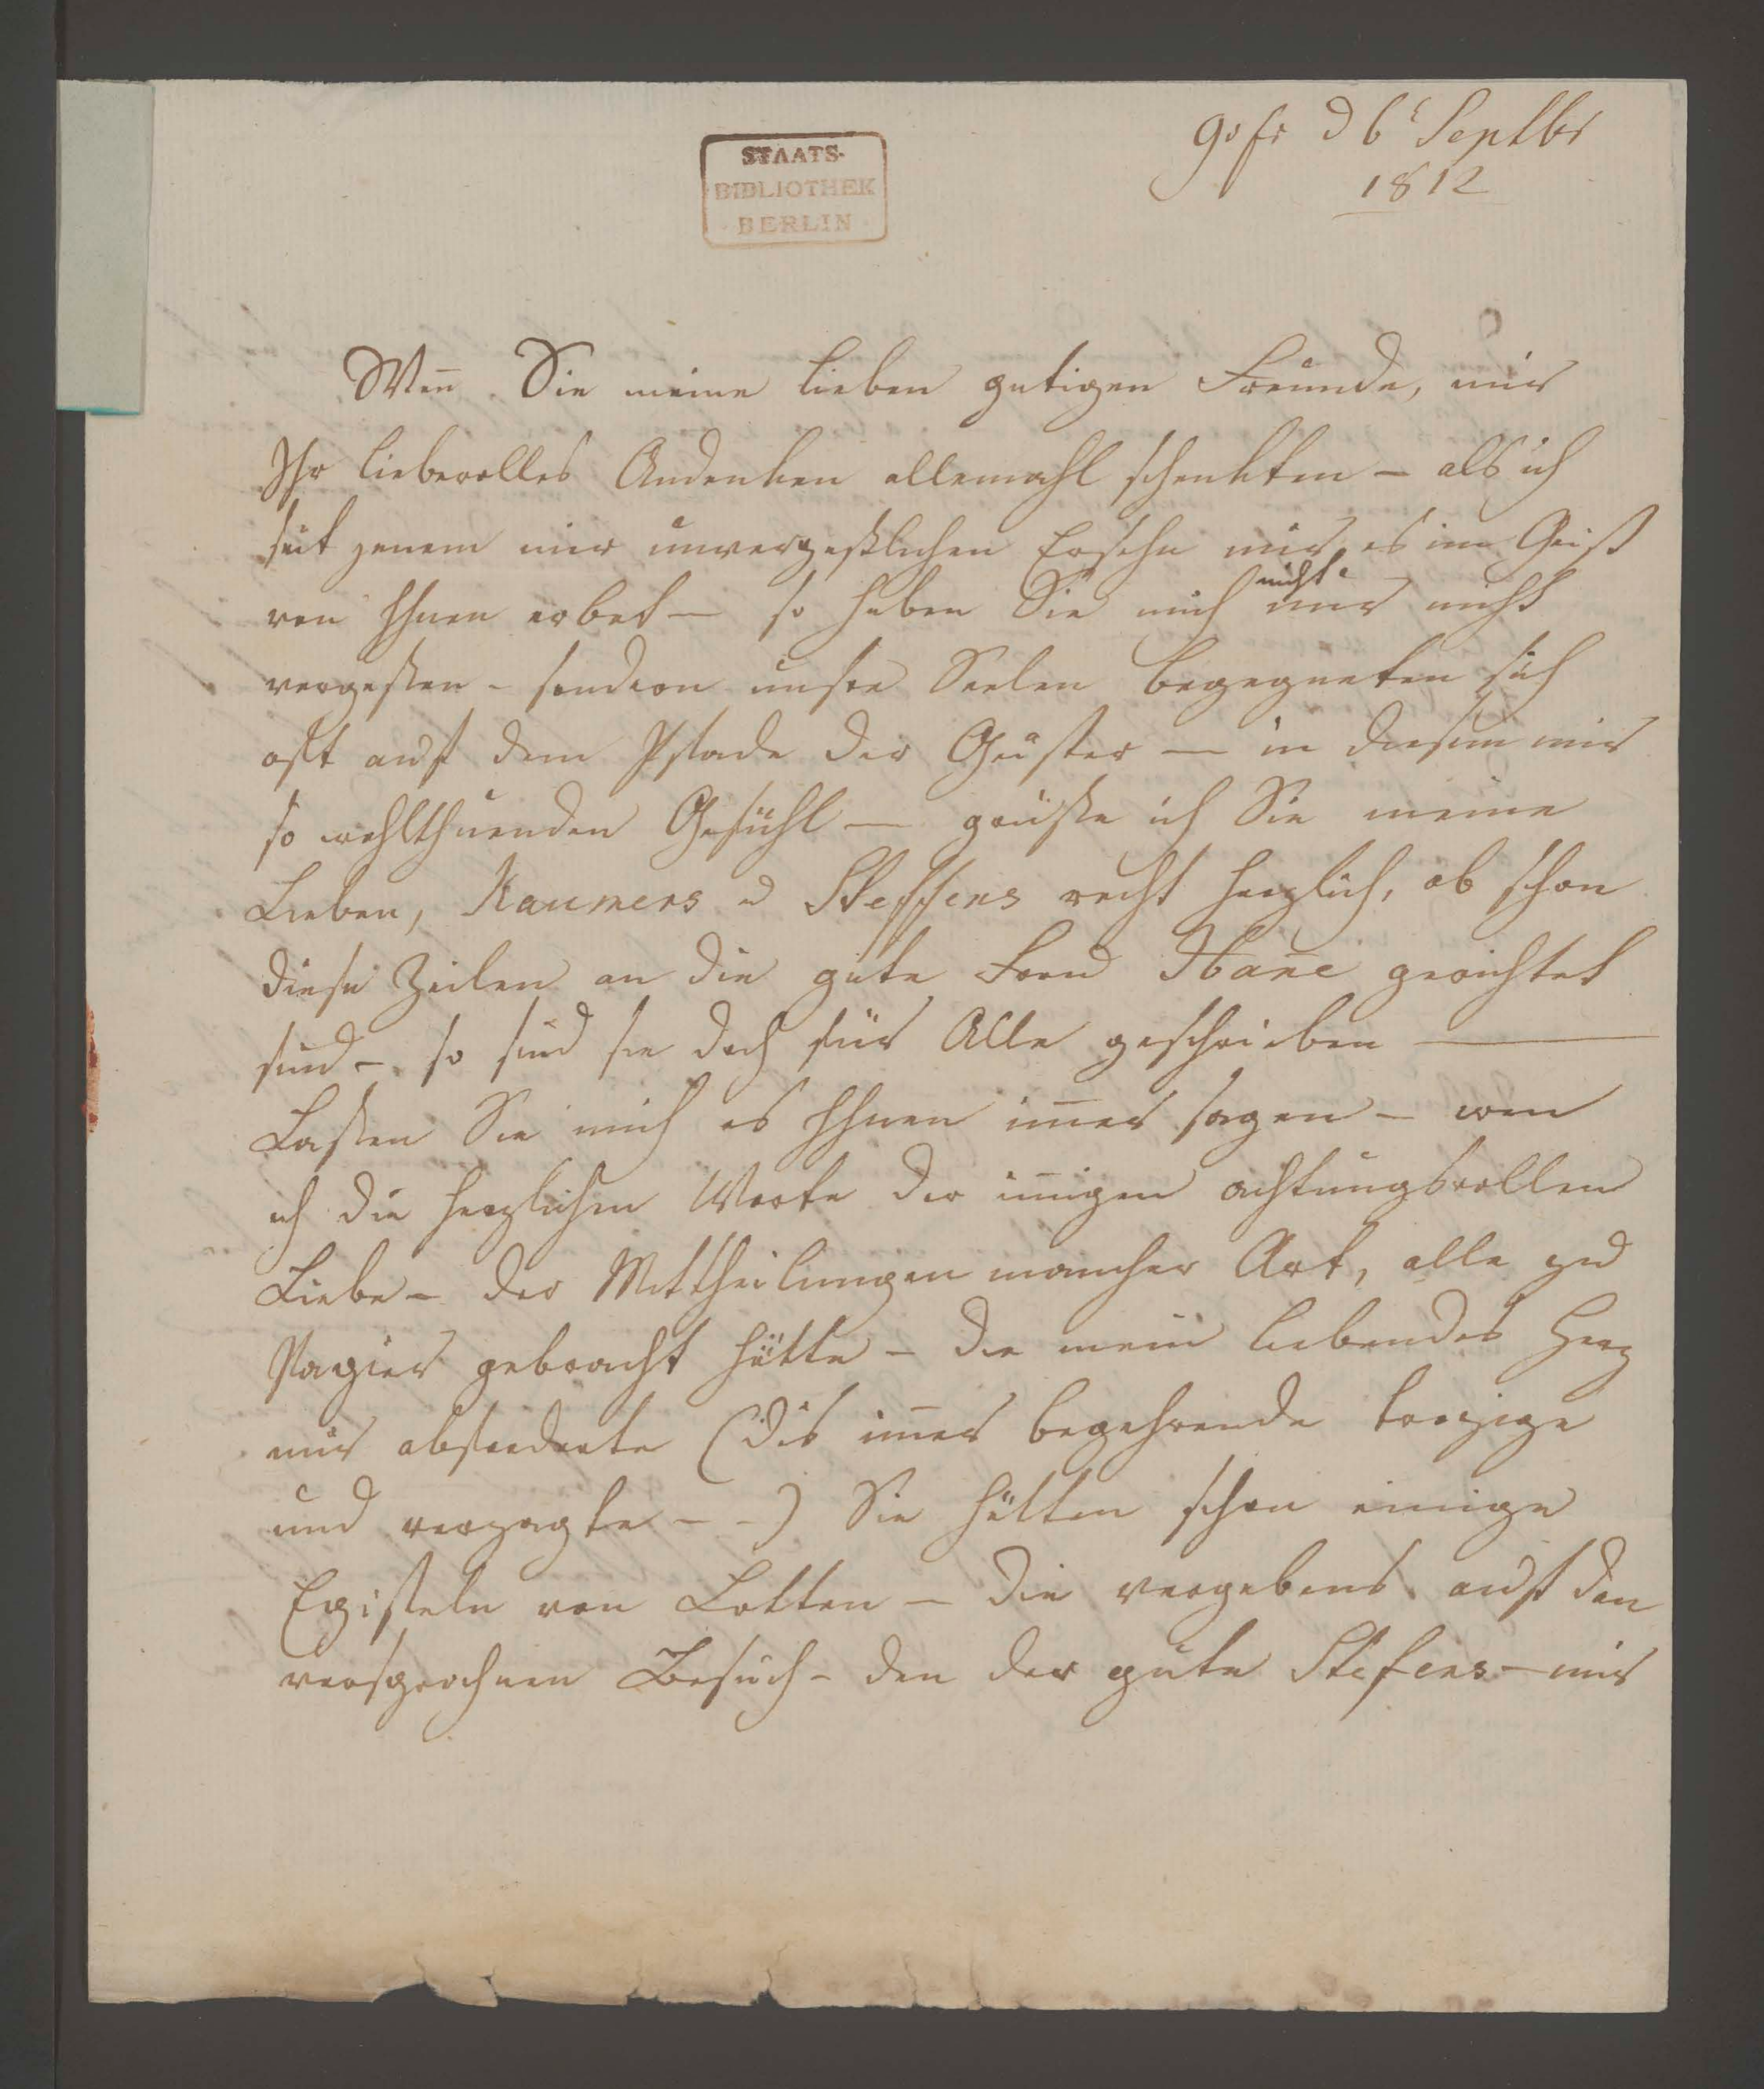 d 6t Septbr
1812
STAATS-
BIBLIOTHEK
BERLIN
Wen̄ Sie meine lieben gutigen Freunde, mir
Ihr liebevolles Andenken allemahl schenkten – als ich
seit jenem mir unvergeßlichen Ersehn mir es im Geist
von Ihnen erbat – so haben Sie mich nicht nur nicht
vergessen – sondern unsre Seelen begegneten sich
oft auf dem Pfade der Geister – in diesem mir
so wohlthuenden Gefühl – grüsse ich Sie meine
Lieben, Raumers u Steffens recht herzlich, ob schon
diese Zeilen an die gute Frau Han̄e gerichtet
sind – so sind sie doch für Alle geschrieben –
Lassen Sie mich es Ihnen im̄er sagen – wen
ich die herzlichen Worte der in̄igen achtungsvollen
Liebe – der Mittheilungen mancher Art, alle zu
Papier gebracht hätte – die mein liebendes Herz
mir abforderte (dis im̄er begehrende trozige
und verzagte – –) Sie hätten schon einige
Episteln von Lotten – die vergebens auf den
versprochnen Besuch – den der gute Stefens – mir